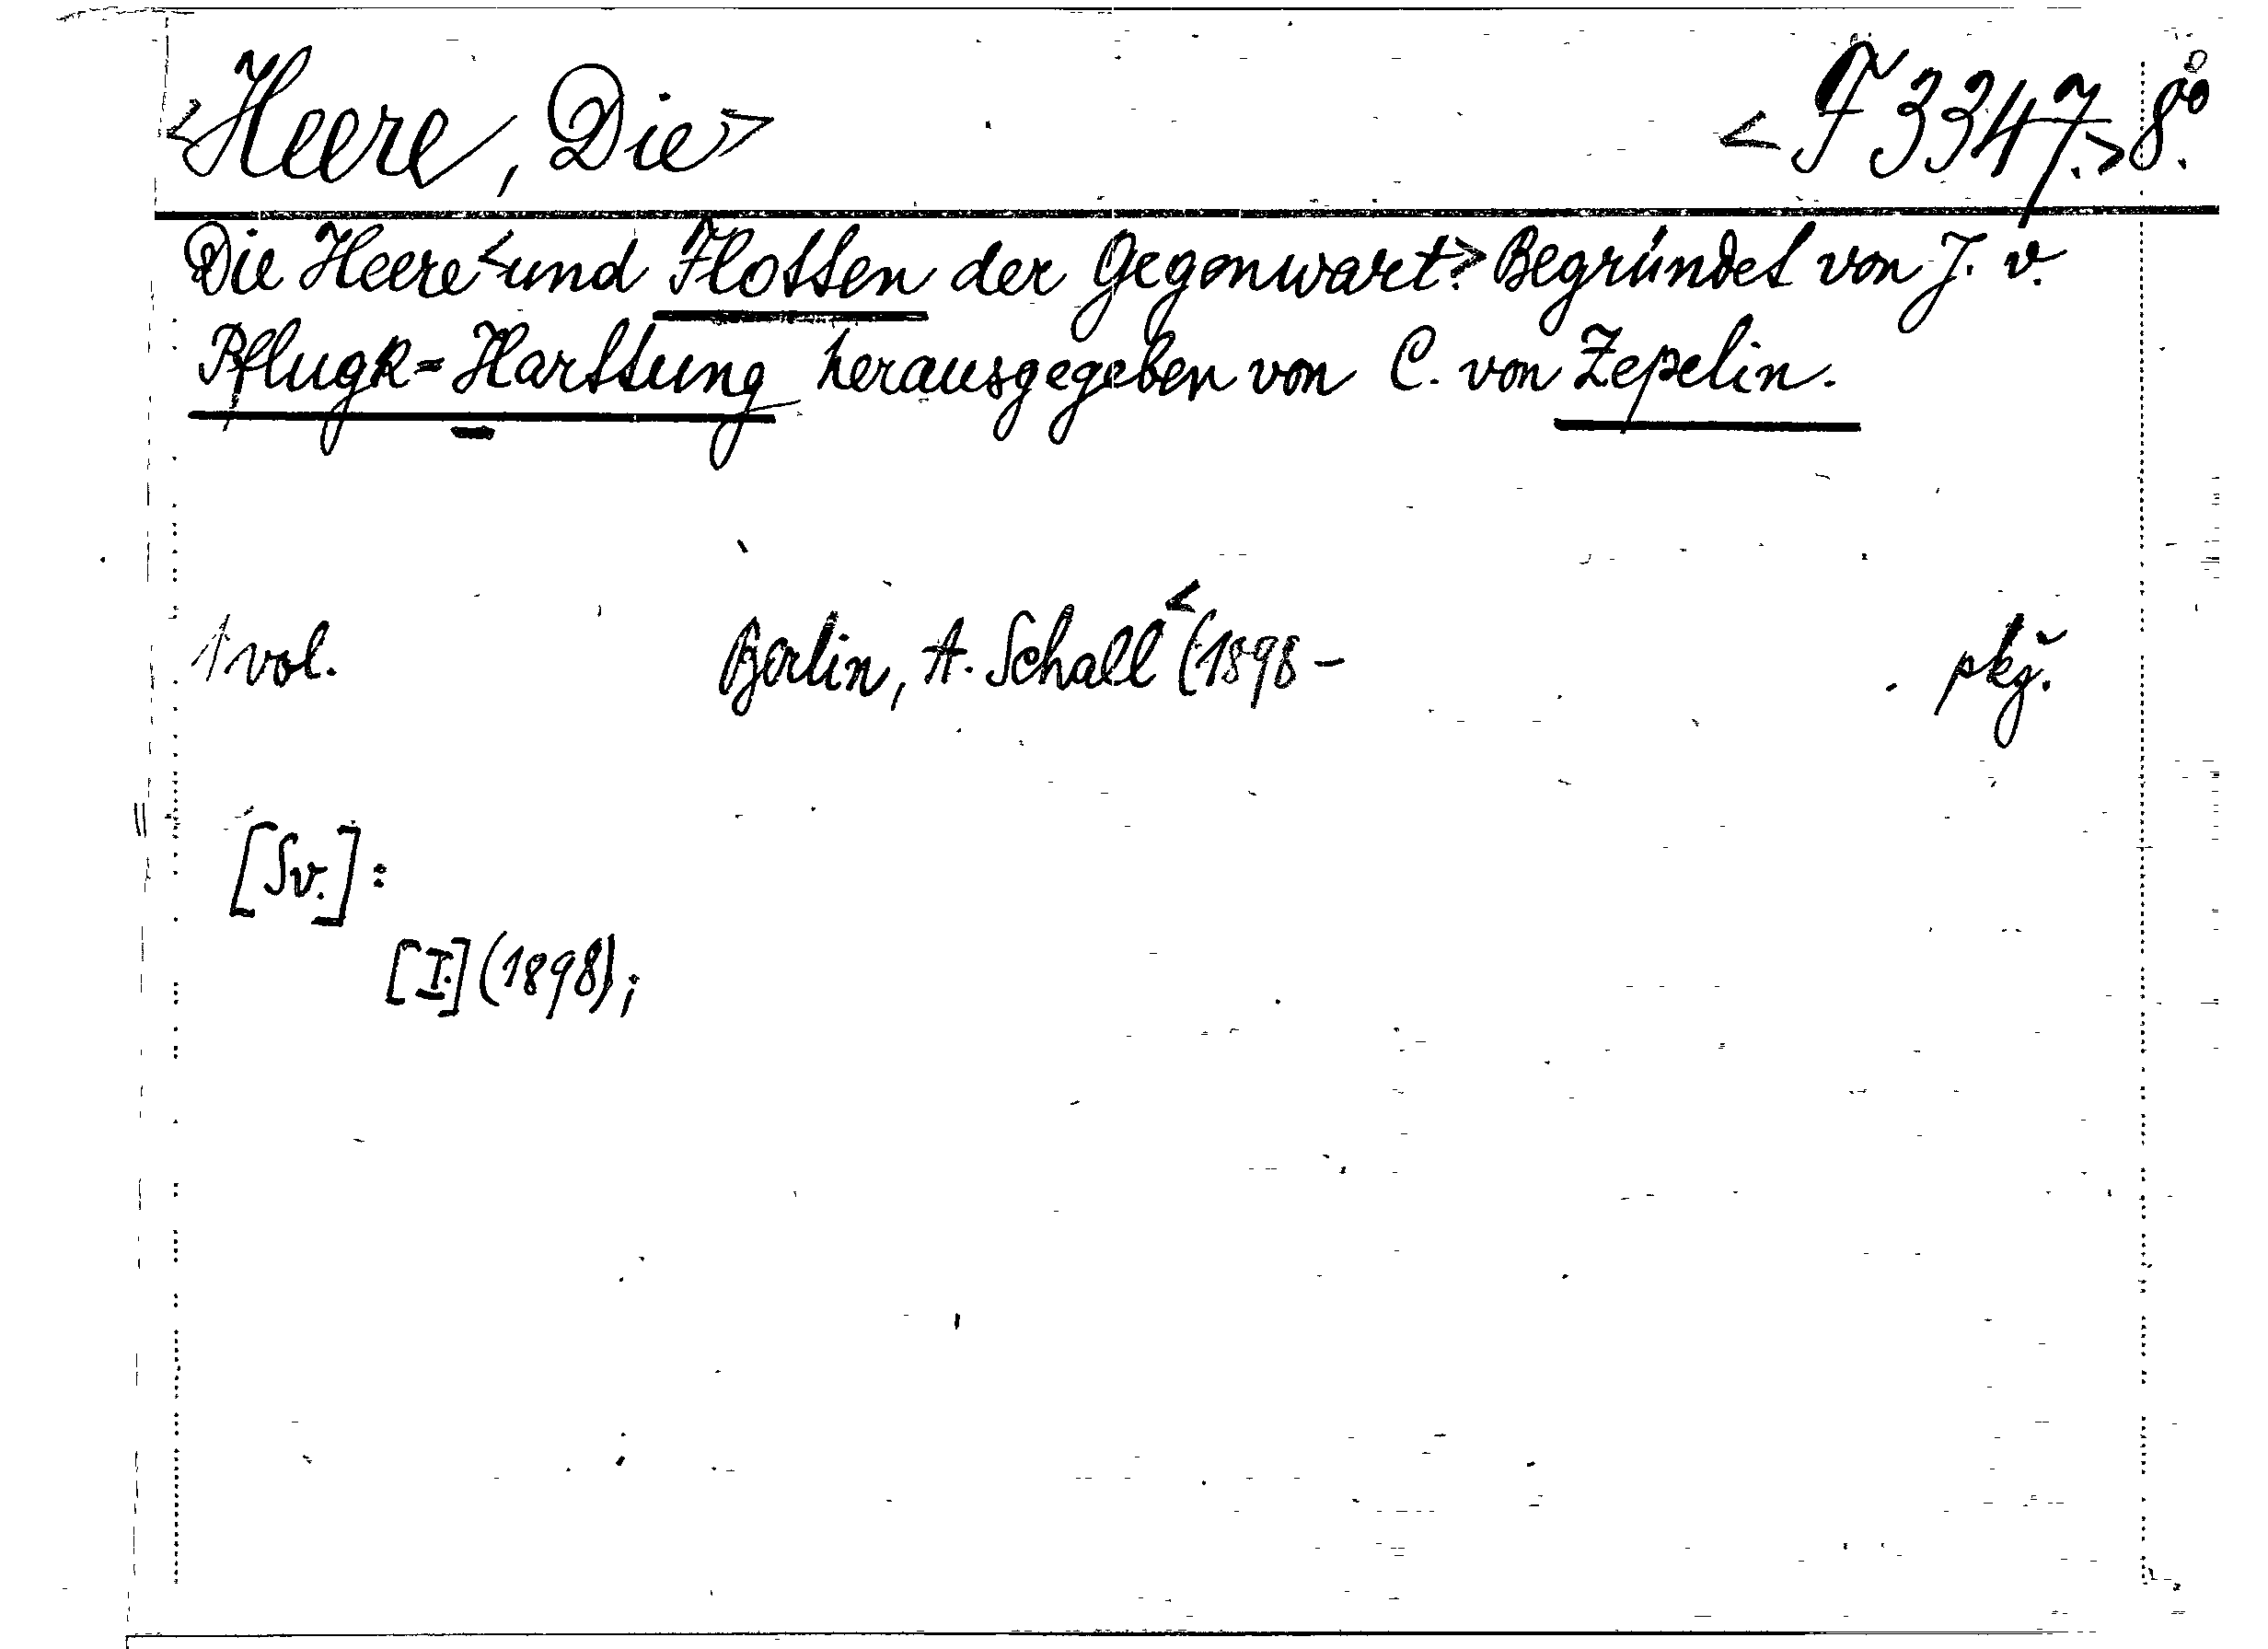 <Heere, Die> <F 3347.> 8°.
Die Heere <und Flotten der Gegenwart.> Begründet von J. v.
Pflugk=Harttung herausgegeben von C. von Zepelin.
1 vol. Berlin, A. Schall <(1898 – . pkž.
[Sv.]:
[I.] (1898);